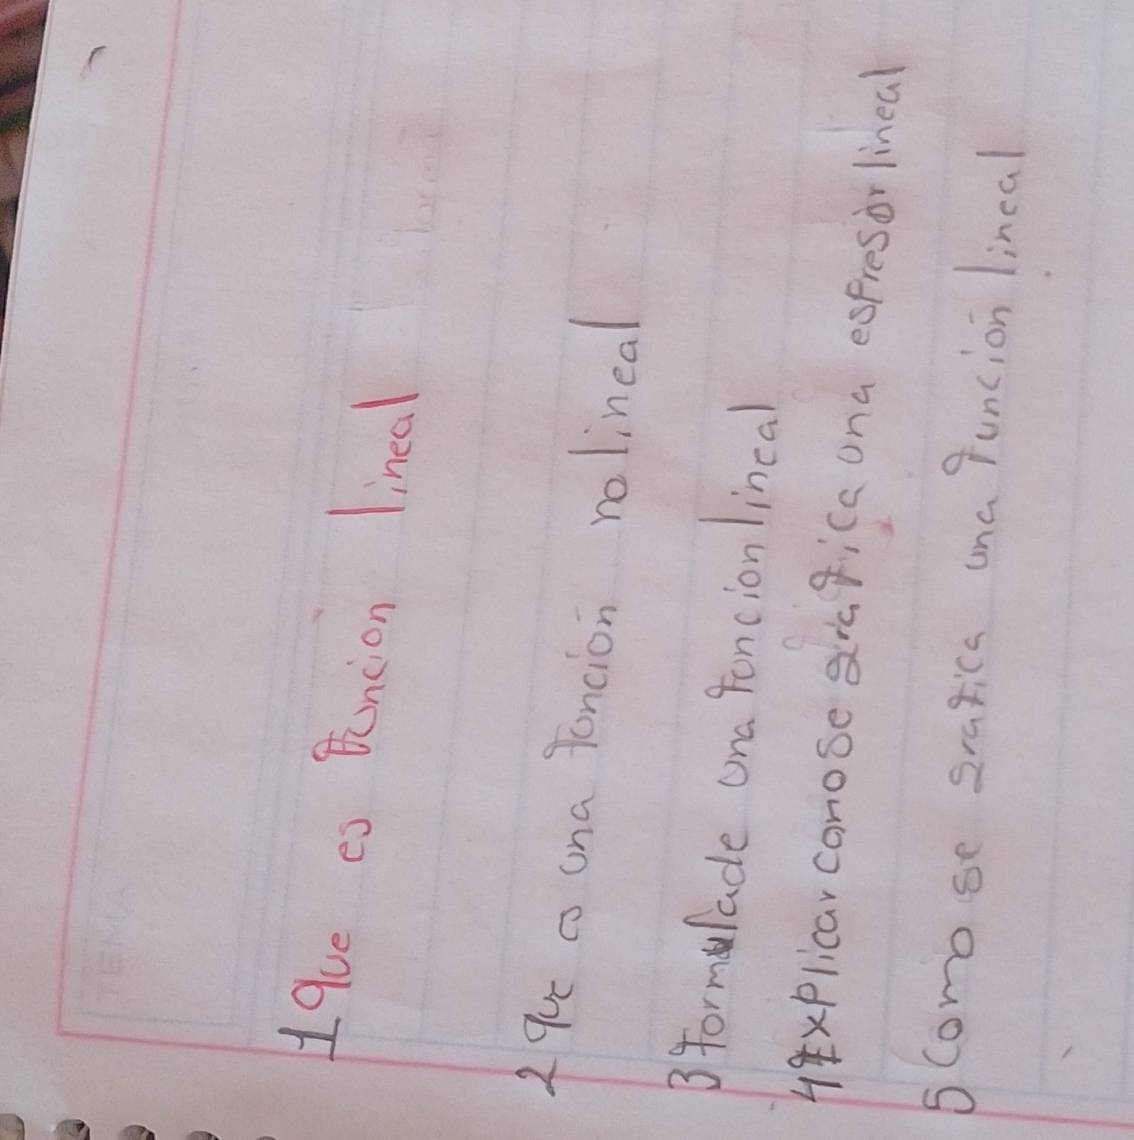 TEMA
1 que es función lineal
2 que es una función no lineal
3 formulade una funcion lineal
4 Explicar comose grafica una espresor lineal
5 Como se grafica una función lineal